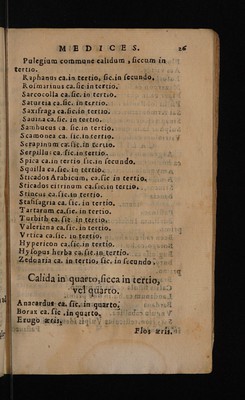 MEDICES. 26
Pulegium commune calidum, siccum in
tertio.
Raphanus ca. in tertio, sic. in secundo.
Rosmarinus ca. sic in tertio.
Sarcocolla ca. sic. in tertio.
Satureia ca. sic. in tertio.
Saxifraga ca. sic. in tertio.
Sauina ca. sic. in tertio.
Sambucus ca. sic. in tertio.
Scamonea ca. sic. in tertio.
Serapinum ca. sic. in tertio.
Serpillum ca. sic. in tertio.
Spica ca. in tertio sic. in secundo.
Squilla ca. sic. in tertio.
Sticados Arabicum, ca. sic. in tertio.
Sticados citrinum ca. sic. in tertio.
Stincus ca. sic. in tertio.
Stafisagria ca. sic. in tertio.
Tartarum ca. sic. in tertio.
Turbith ca. sic. in tertio.
Valeriana ca. sic. in tertio.
Vrtica ca. sic. in tertio.
Hypericon ca. sic. in tertio.
Hysopus herba ca. sic. in tertio.
Zedoaria ca. in tertio, sic. in secundo.
Calida in quarto, sicca in tertio,
vel quarto.
Anacardus ca. sic. in quarto.
Borax ca. sic. in quarto.
Erugo æris.
Flos æris.